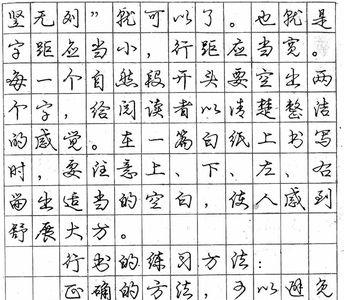 竖无列”就可以了。也就是
字距应当小，行距应当宽。
每一个自然段开头要空出两
个字，给阅读者以清楚整洁
的感觉。在一篇白纸上书写
时，要注意上、下、左、右
留出适当的空白，使人感到
舒展大方。
行书的练习方法：
正确的方法，可以避免